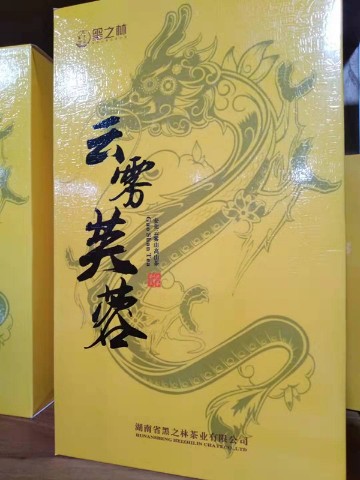 黑之林
云雾芙蓉
GaoShan Tea
湖南省黑之林茶业有限公司
HUNANSHENG HEIZHILIN CHAYE CO.,LTD